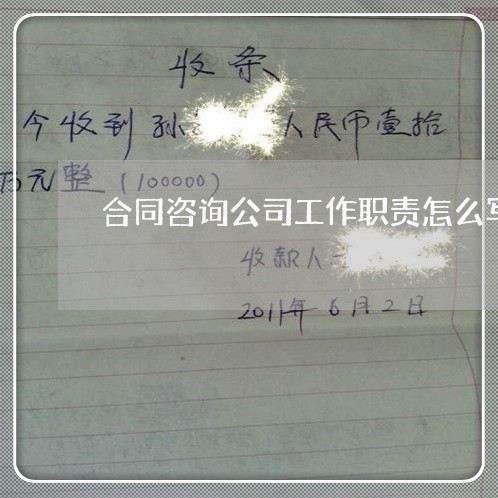 收条
今收到孙 人民币壹拾
万元整（100000）
合同咨询公司工作职责怎么写
收款人
2011年6月2日